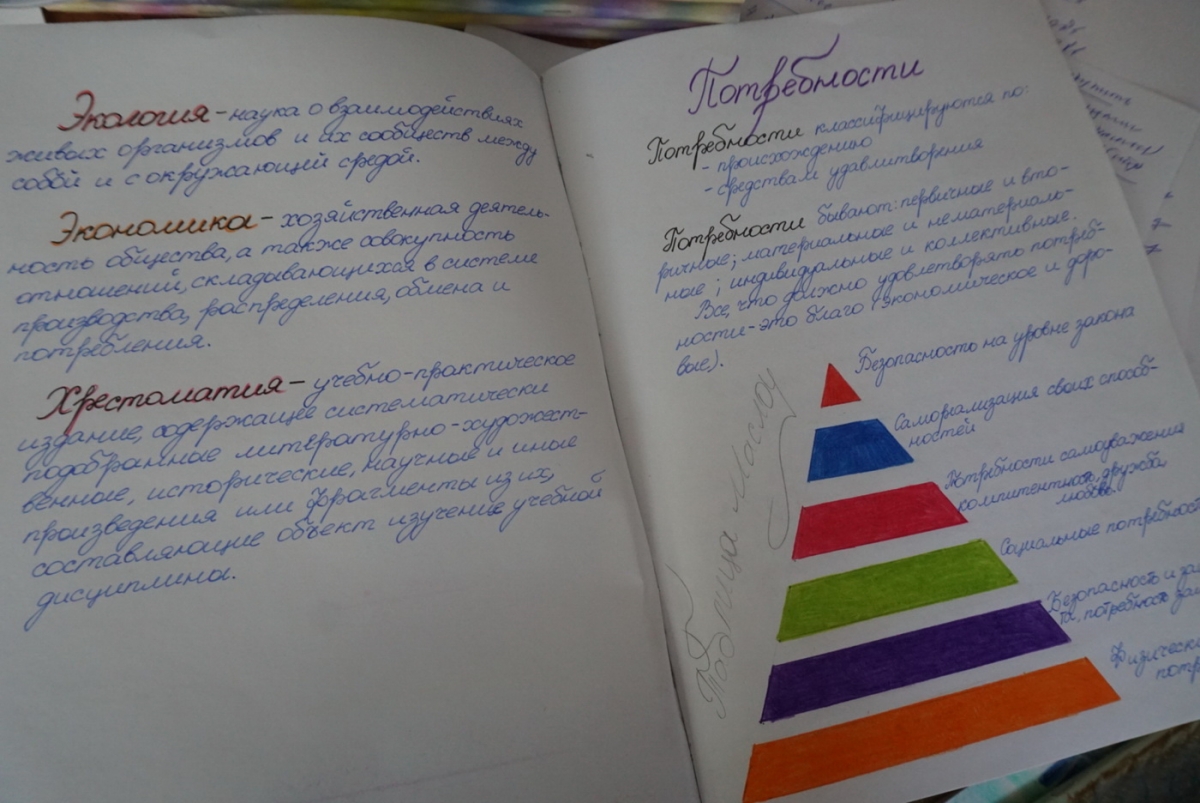 Экология – наука о взаимодействиях
живых организмов и их сообществ между
собой и с окружающей средой.
Экономика – хозяйственная деятель-
ность общества, а также совокупность
отношений, складывающихся в системе
производства, распределения, обмена и
потребления.
Хрестоматия – учебно-практическое
издание, содержащее систематически
подобранные литературно-художест-
венные, исторические, научные и иные
произведения или фрагменты из их,
составляющие объект изучение учебной
дисциплины.
Потребности
Потребности классифицируются по:
- происхождению
- средствам удавлитворения
Потребности бывают: первичные и вто-
ричные; материальные и нематериаль-
ные; индивидуальные и коллективные.
Все, что должно удовлетворять потреб-
ности – это благо (экономическое и даро-
вые).
Таблица Маслоу
Безопасность на уровне закона
Самореализация своих способ-
ностей
Потребности самоуважения
компитентность, дружба,
любовь.
Социальные потребност
Безопасность и за
та, потребность
Физически
потр